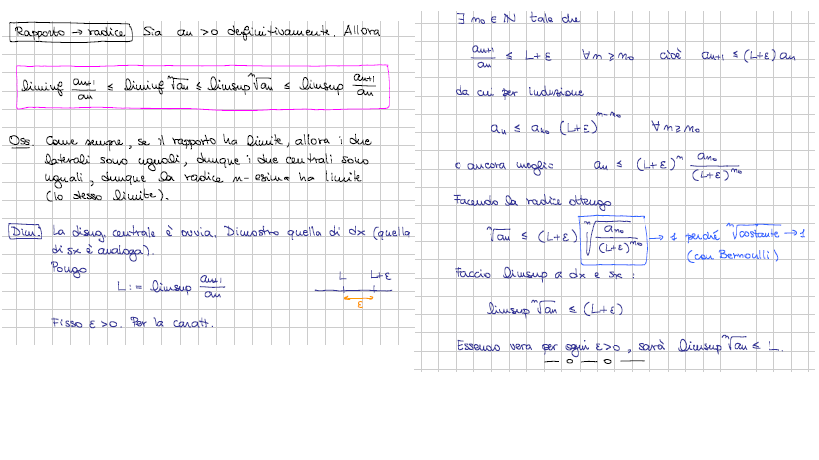 Rapporto → radice Sia an > 0 definitivamente. Allora
liminf an+1/an ≤ liminf ⁿ√an ≤ limsup ⁿ√an ≤ limsup an+1/an
Oss. Come sempre, se il rapporto ha limite, allora i due
laterali sono uguali, dunque i due centrali sono
uguali, dunque la radice n-esima ha limite
(lo stesso limite).
Dim. La disug. centrale è ovvia. Dimostro quella di dx (quella
di sx è analoga).
Pongo
L := limsup an+1/an
L L+ε
ε
Fisso ε > 0. Per la caratt.
∃ n₀ ∈ ℕ tale che
an+1/an ≤ L+ε ∀ n ≥ n₀ cioè an+1 ≤ (L+ε) an
da cui per induzione
an ≤ an₀ (L+ε)ⁿ⁻ⁿ₀ ∀ n ≥ n₀
o ancora meglio an ≤ (L+ε)ⁿ an₀/(L+ε)ⁿ₀
Facendo la radice ottengo
ⁿ√an ≤ (L+ε) ⁿ√(an₀/(L+ε)ⁿ₀) → 1 perché ⁿ√costante → 1
(con Bernoulli)
Faccio limsup a dx e sx :
limsup ⁿ√an ≤ (L+ε)
Essendo vera per ogni ε>0, sarà limsup ⁿ√an ≤ L.